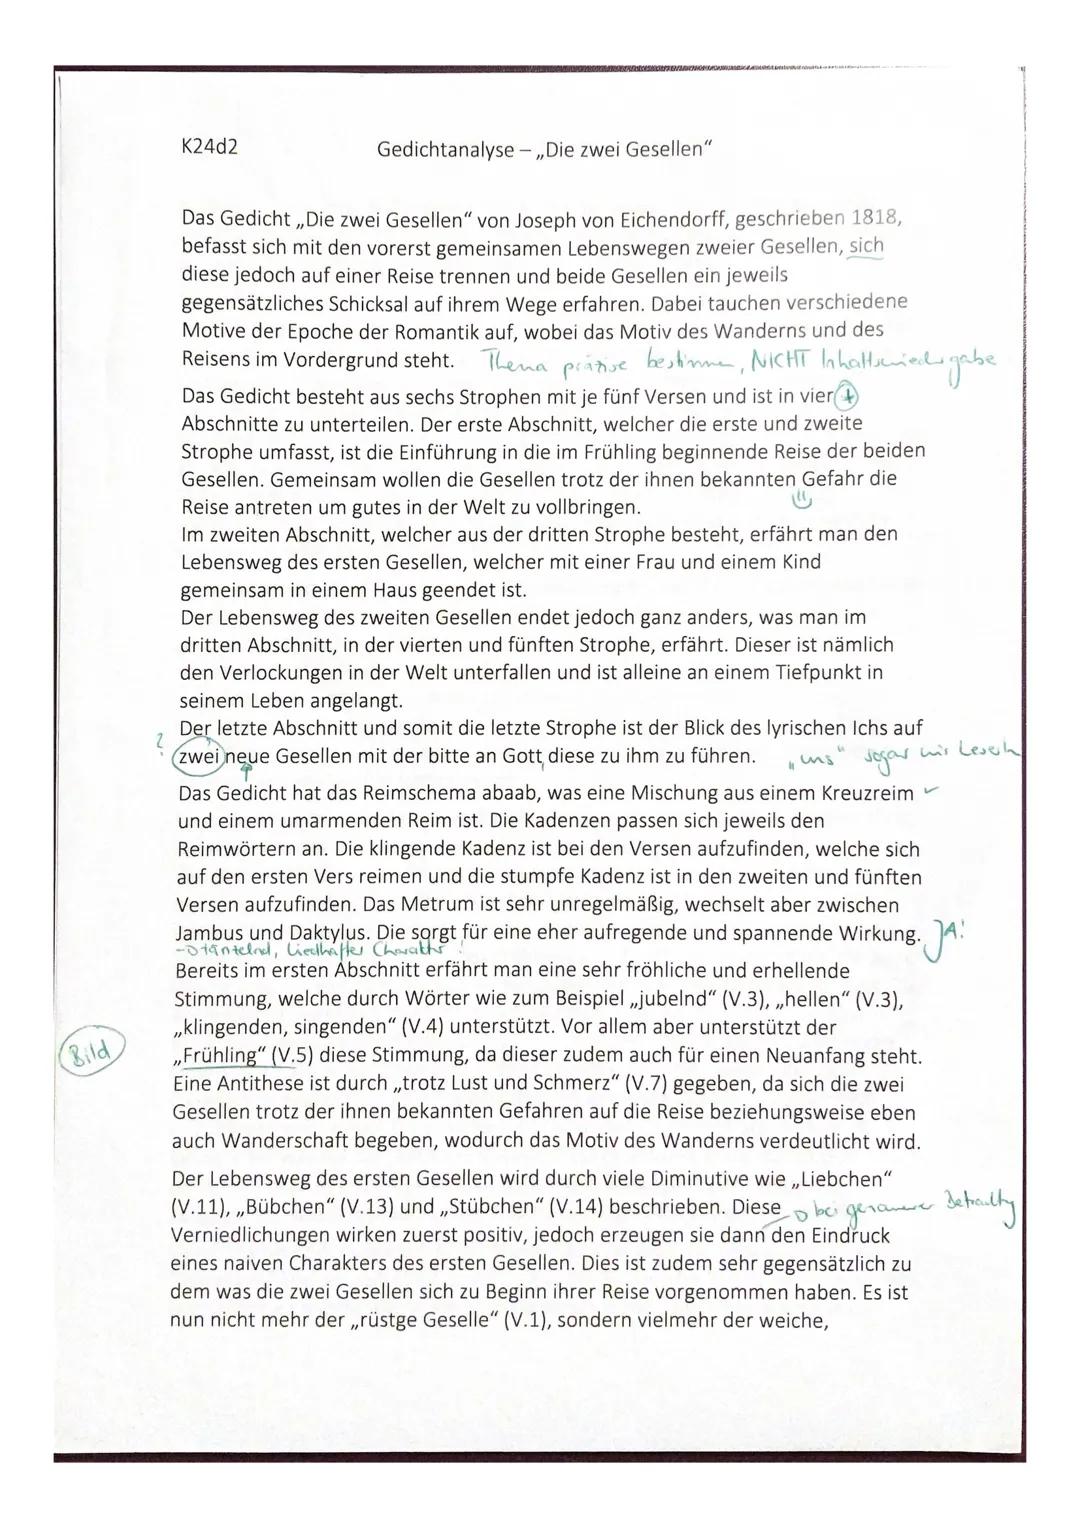 K24d2 Gedichtanalyse – „Die zwei Gesellen“
Das Gedicht „Die zwei Gesellen“ von Joseph von Eichendorff, geschrieben 1818,
befasst sich mit den vorerst gemeinsamen Lebenswegen zweier Gesellen, sich
diese jedoch auf einer Reise trennen und beide Gesellen ein jeweils
gegensätzliches Schicksal auf ihrem Wege erfahren. Dabei tauchen verschiedene
Motive der Epoche der Romantik auf, wobei das Motiv des Wanderns und des
Reisens im Vordergrund steht. Thema präzise bestimmen, NICHT Inhaltswiedergabe
Das Gedicht besteht aus sechs Strophen mit je fünf Versen und ist in vier
Abschnitte zu unterteilen. Der erste Abschnitt, welcher die erste und zweite
Strophe umfasst, ist die Einführung in die im Frühling beginnende Reise der beiden
Gesellen. Gemeinsam wollen die Gesellen trotz der ihnen bekannten Gefahr die
Reise antreten um gutes in der Welt zu vollbringen.
Im zweiten Abschnitt, welcher aus der dritten Strophe besteht, erfährt man den
Lebensweg des ersten Gesellen, welcher mit einer Frau und einem Kind
gemeinsam in einem Haus geendet ist.
Der Lebensweg des zweiten Gesellen endet jedoch ganz anders, was man im
dritten Abschnitt, in der vierten und fünften Strophe, erfährt. Dieser ist nämlich
den Verlockungen in der Welt unterfallen und ist alleine an einem Tiefpunkt in
seinem Leben angelangt.
Der letzte Abschnitt und somit die letzte Strophe ist der Blick des lyrischen Ichs auf
? zwei neue Gesellen mit der bitte an Gott diese zu ihm zu führen. „uns“ sogar wir Leser
Das Gedicht hat das Reimschema abaab, was eine Mischung aus einem Kreuzreim ✓
und einem umarmenden Reim ist. Die Kadenzen passen sich jeweils den
Reimwörtern an. Die klingende Kadenz ist bei den Versen aufzufinden, welche sich
auf den ersten Vers reimen und die stumpfe Kadenz ist in den zweiten und fünften
Versen aufzufinden. Das Metrum ist sehr unregelmäßig, wechselt aber zwischen
Jambus und Daktylus. Die sorgt für eine eher aufregende und spannende Wirkung. A!
→ tänzelnd, liedhafter Charakter !
Bereits im ersten Abschnitt erfährt man eine sehr fröhliche und erhellende
Stimmung, welche durch Wörter wie zum Beispiel „jubelnd“ (V.3), „hellen“ (V.3),
„klingenden, singenden“ (V.4) unterstützt. Vor allem aber unterstützt der
Bild „Frühling“ (V.5) diese Stimmung, da dieser zudem auch für einen Neuanfang steht.
Eine Antithese ist durch „trotz Lust und Schmerz“ (V.7) gegeben, da sich die zwei
Gesellen trotz der ihnen bekannten Gefahren auf die Reise beziehungsweise eben
auch Wanderschaft begeben, wodurch das Motiv des Wanderns verdeutlicht wird.
Der Lebensweg des ersten Gesellen wird durch viele Diminutive wie „Liebchen“
(V.11), „Bübchen“ (V.13) und „Stübchen“ (V.14) beschrieben. Diese → bei genauerer Betrachtg
Verniedlichungen wirken zuerst positiv, jedoch erzeugen sie dann den Eindruck
eines naiven Charakters des ersten Gesellen. Dies ist zudem sehr gegensätzlich zu
dem was die zwei Gesellen sich zu Beginn ihrer Reise vorgenommen haben. Es ist
nun nicht mehr der „rüstge Geselle“ (V.1), sondern vielmehr der weiche,